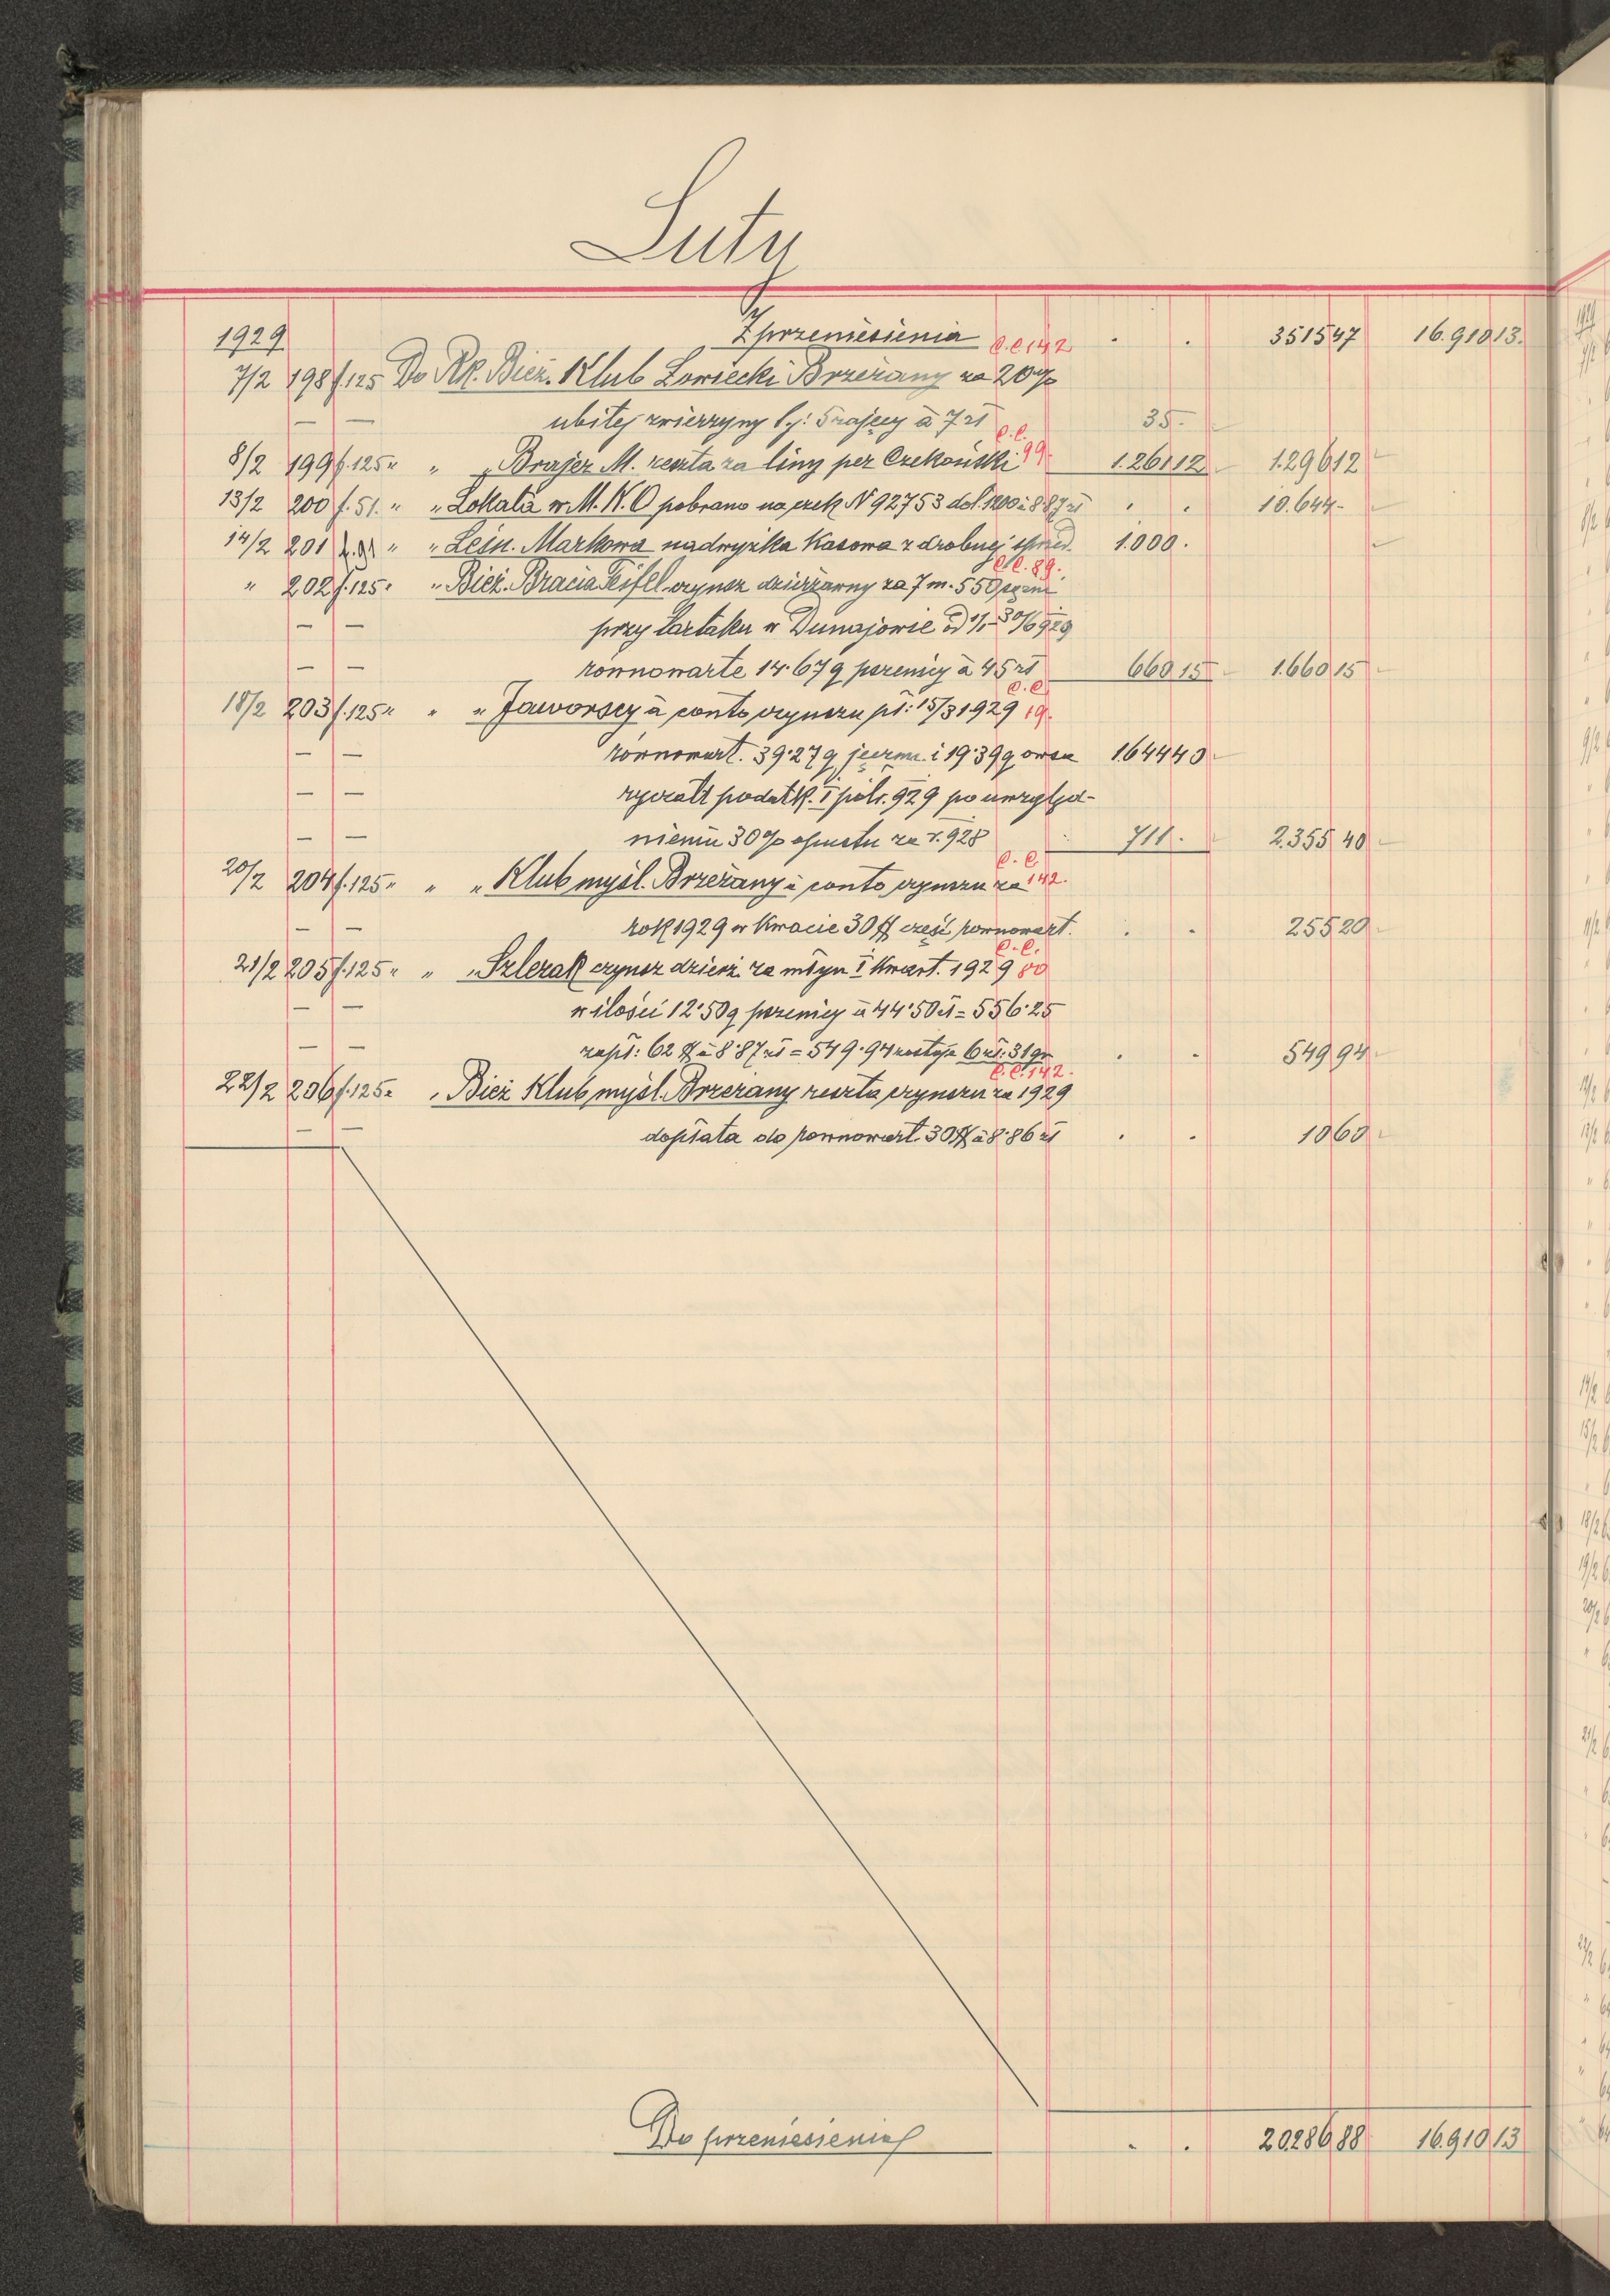 Luty
1929 Z przeniesienia C.C 142 . . 3515 47 16.910 13.
7/2 198 f. 125 Do Rk. Bież. Klub Łowiecki Brzeżany za 20%
— — ubitej zwierzyny tj: 5 zajęcy à 7 zł 35.-
8/2 199 f. 125 " " " Brajer M. reszta za liny per Czekoński C.C. 99. 1.261 12 1.296 12
13/2 200 f. 51. " " Lokata w M.K.O pobrano na czek N 92753 dol. 1200 à 8.87 zł . . 10.644.-
14/2 201 " " Leśn. Markowa nadwyżka Kasowa z drobnej sprzed. 1.000.
" 202 f. 125 " " Bież. Bracia Teifel czynsz dzierżawny za 7 m. 550 C.C. 89.
— — przy tartaku w Dunajowie od 1/1 - 30/6 929
— — równowarte 14.67 q pszenicy à 45 zł 660 15 1.660 15
18/2 203 f. 125 " " " Jaworscy à conto czynszu pł: 15/3 1929 C.C. 19.
— — równowart. 39.27 q jęczm. i 19.39 q owsa 1.644 40
— — ryczałt podatk. I półr. 929 po uwzględ-
— — nieniu 30% opustu za r. 928 711. 2.355 40
20/2 204 f. 125 " " " Klub myśl. Brzeżany à conto czynszu za C.C. 142.
— — rok 1929 w kwocie 30 $ część równowart. . . 255 20
21/2 205 f. 125 " " " Szlezak czynsz dzierż. za młyn I kwart. 1929 C.C. 80
— — w ilości 12.50 q pszenicy à 44.50 zł = 556.25
— — zapł: 62 $ à 8.87 zł = 549.94 zostaje 6 zł. 31 gr . . 549 94
22/2 206 f. 125 " " Bież Klub myśl. Brzeżany reszta czynszu za 1929 C.C. 142.
— — dopłata do równowart. 30 $ à 8.86 zł . . 10 60
Do przeniesienia . . 20.286 88 16.910 13